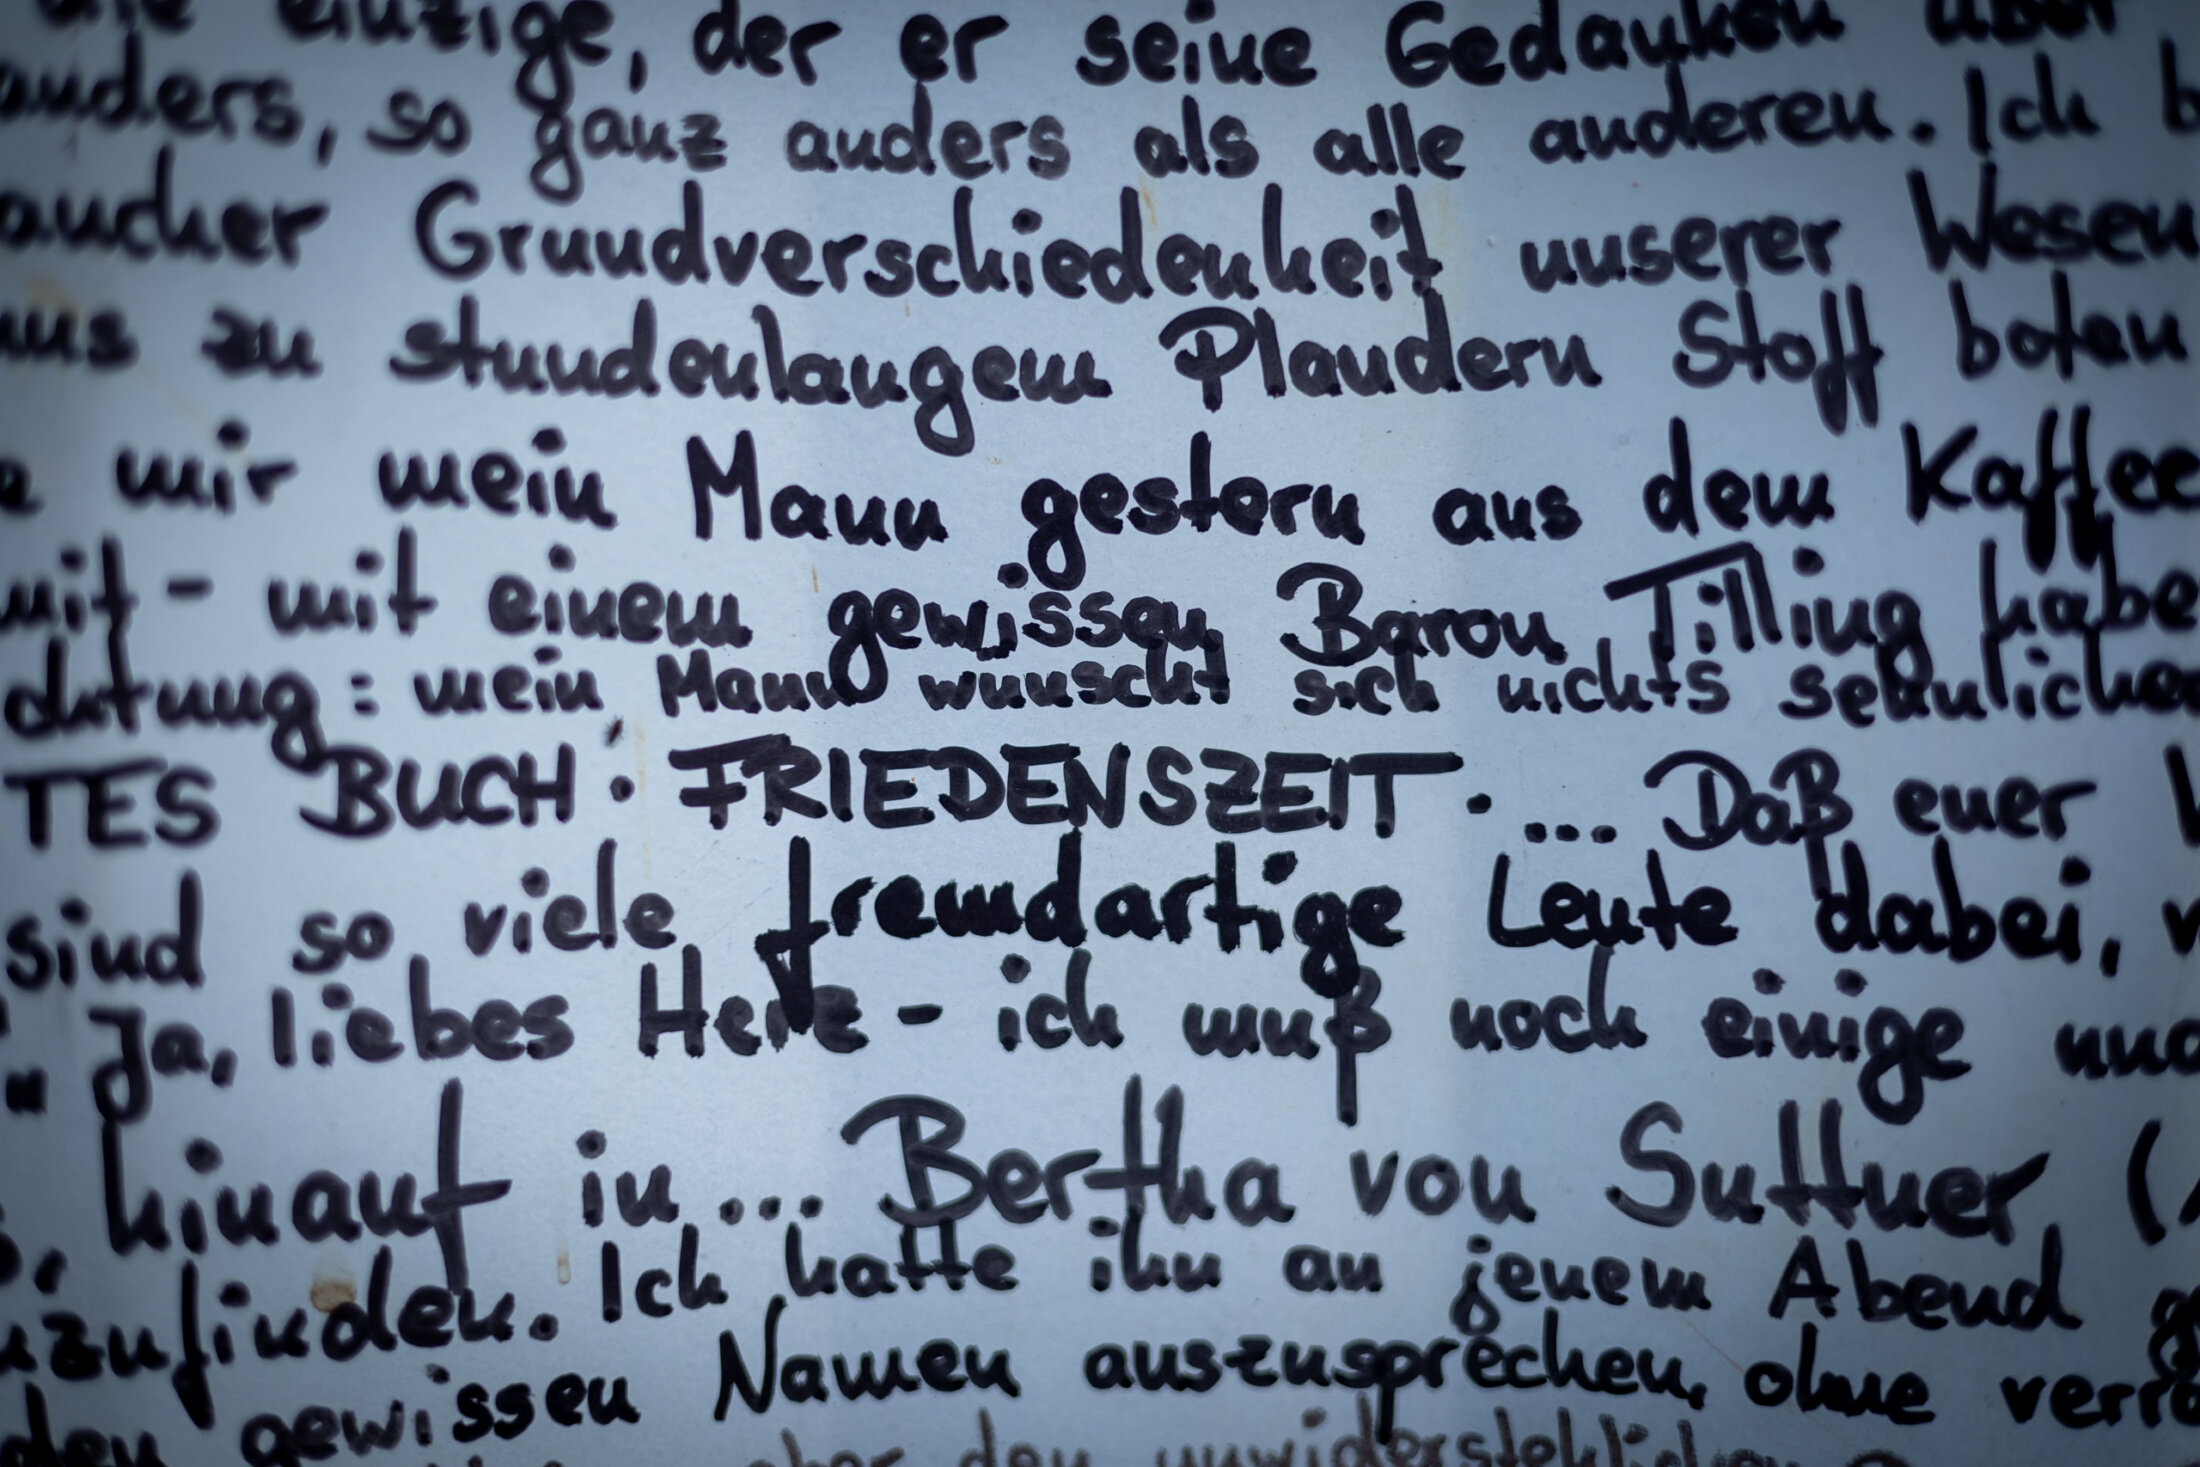 die einzige, der er seine Gedanken über
anders, so ganz anders als alle anderen. Ich b
aucher Grundverschiedenheit unserer Wesen
uns zu stundenlangem Plaudern Stoff boten
e mir mein Mann gestern aus dem Kaffee
mit - mit einem gewissen Baron Tilling habe
chtung: mein Mann wunscht sich nichts sehnlicher
TES BUCH: FRIEDENSZEIT. ... Daß euer
sind so viele fremdartige Leute dabei,
" Ja, liebes Herz - ich muß noch einige und
hinauf in ... Bertha von Suttner (
zufinden. Ich hatte ihn an jenem Abend g
den gewissen Namen auszusprechen, ohne verra
aber den unwiderstehlichen